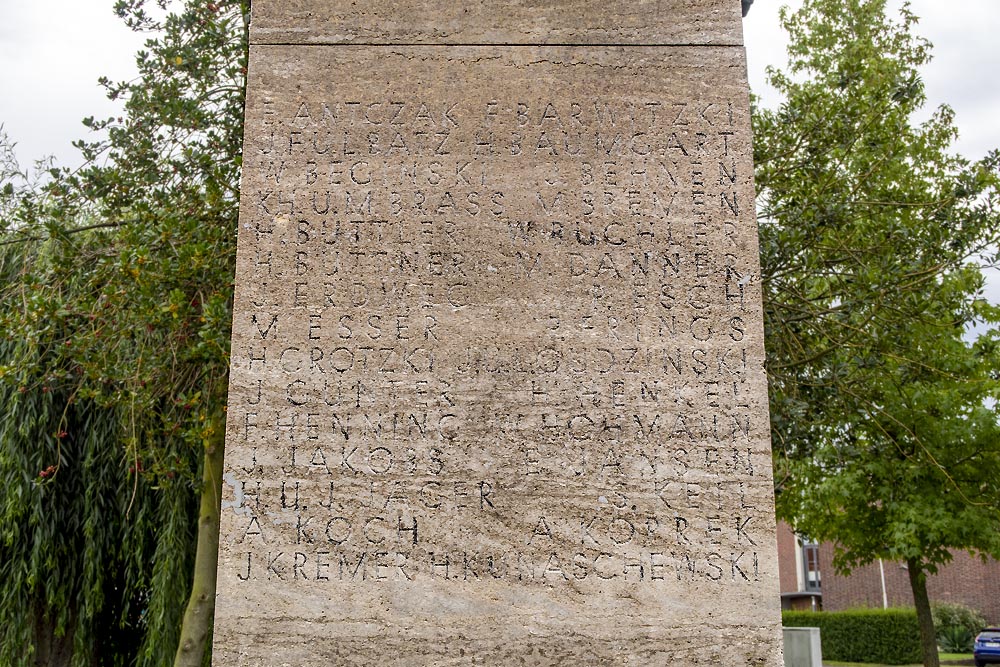 F. ANTCZAK F. BARWITZKI
J. FULBATZ H. BAUMGART
W. BEGINSKI J. BEHNEN
K. U. M. BRASS M. BREMEN
H. BUTTLER W. BUCHLER
H. BUTTNER W. DANNER
J. ERDWEG R. ESCH
M. ESSER F. FRINGS
H. GROTZKI J. U. L. GUDZINSKI
J. GUNTER H. HENKEL
F. HENNING HOHMANN
J. JAKOBS E. JANSEN
H. U. J. JAEGER S. KEIL
A. KOCH A. KOPREK
J. KREMER H. KUNASCHEWSKI